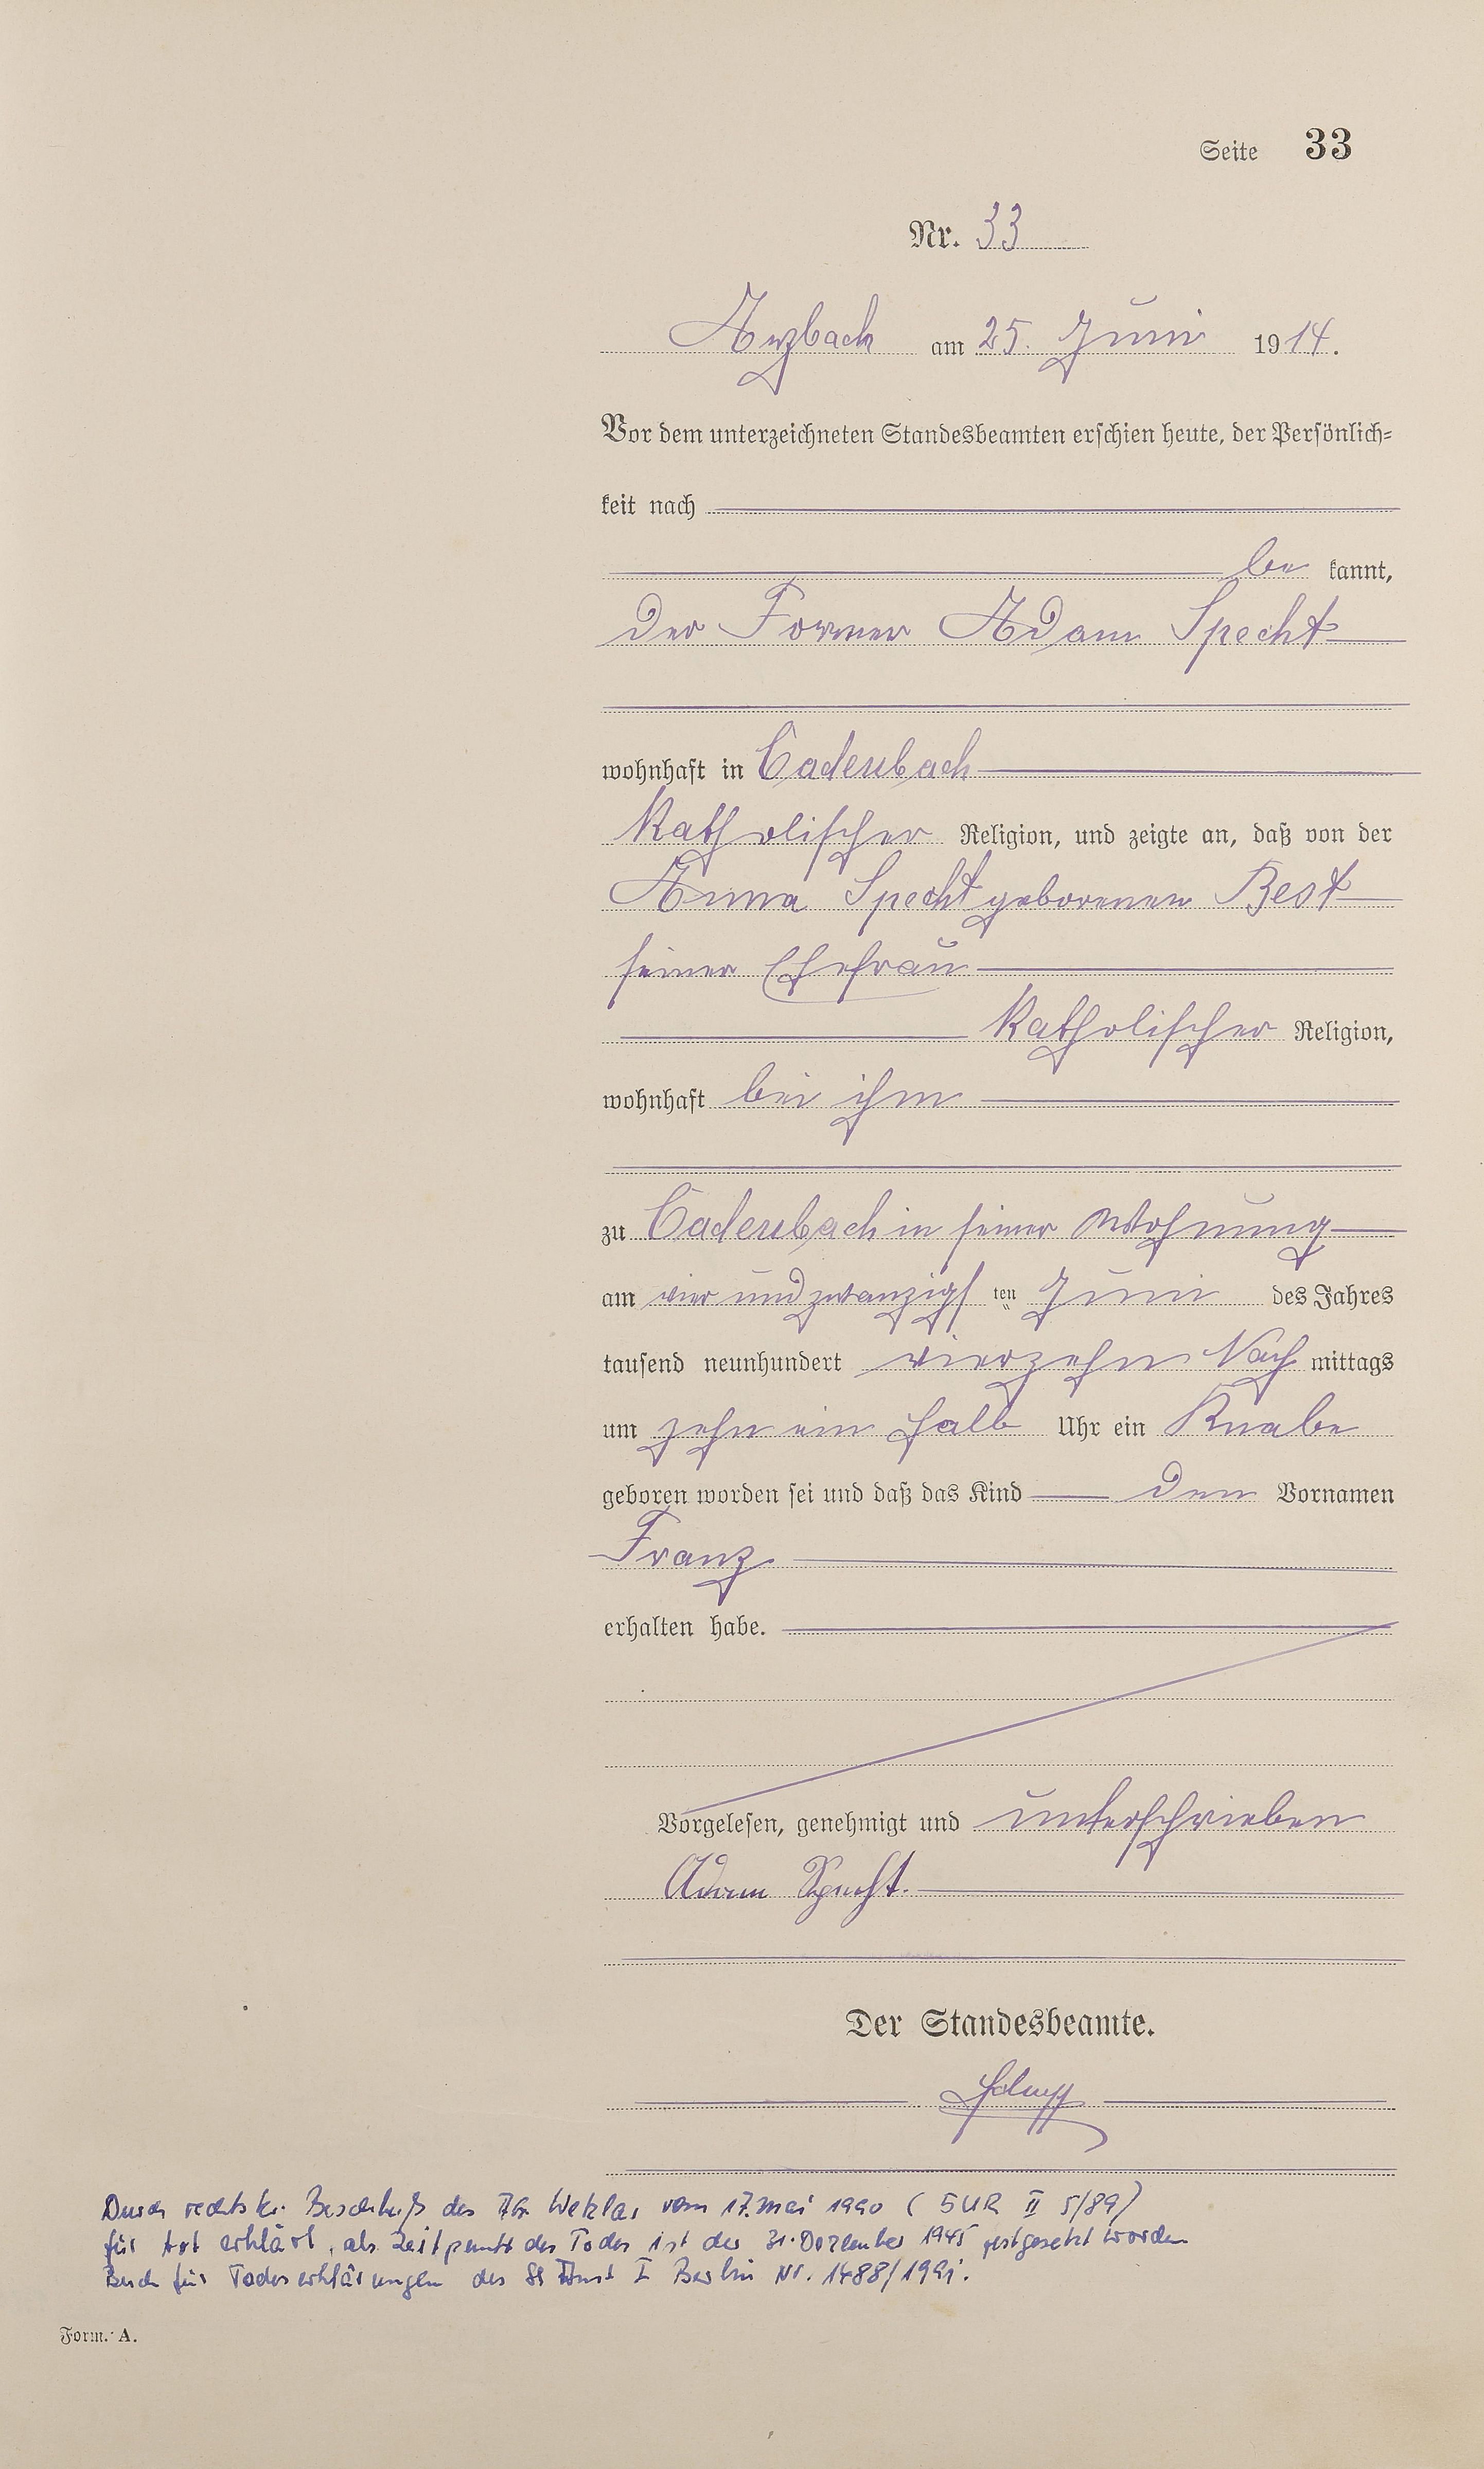 Seite 33
Nr. 33
Arzbach am 25. Juni 1914.
Vor dem unterzeichneten Standesbeamten erschien heute, der Persönlich-
keit nach
be kannt,
der Former Adam Specht
wohnhaft in Cadenbach
katholischer Religion, und zeigte an, daß von der
Anna Specht geborenen Best
seiner Ehefrau
katholischer Religion,
wohnhaft bei ihm
zu Cadenbach in seiner Wohnung
am vier und zwanzigs ten Juni des Jahres
tausend neunhundert vierzehn Nach mittags
um zehn ein halb Uhr ein Knabe
geboren worden sei und daß das Kind den Vornamen
Franz
erhalten habe.
Vorgelesen, genehmigt und unterschrieben
Adam Specht.
Der Standesbeamte.
Durch rechtskr. Beschluß des AG Wetzlar vom 17. Mai 1990 (5 UR II 5/89)
für tot erklärt, als Zeitpunkt des Todes ist der 31. Dezember 1945 festgesetzt worden
Buch für Todeserklärungen des St Amt I Berlin Nr. 1488/1991.
Form. A.